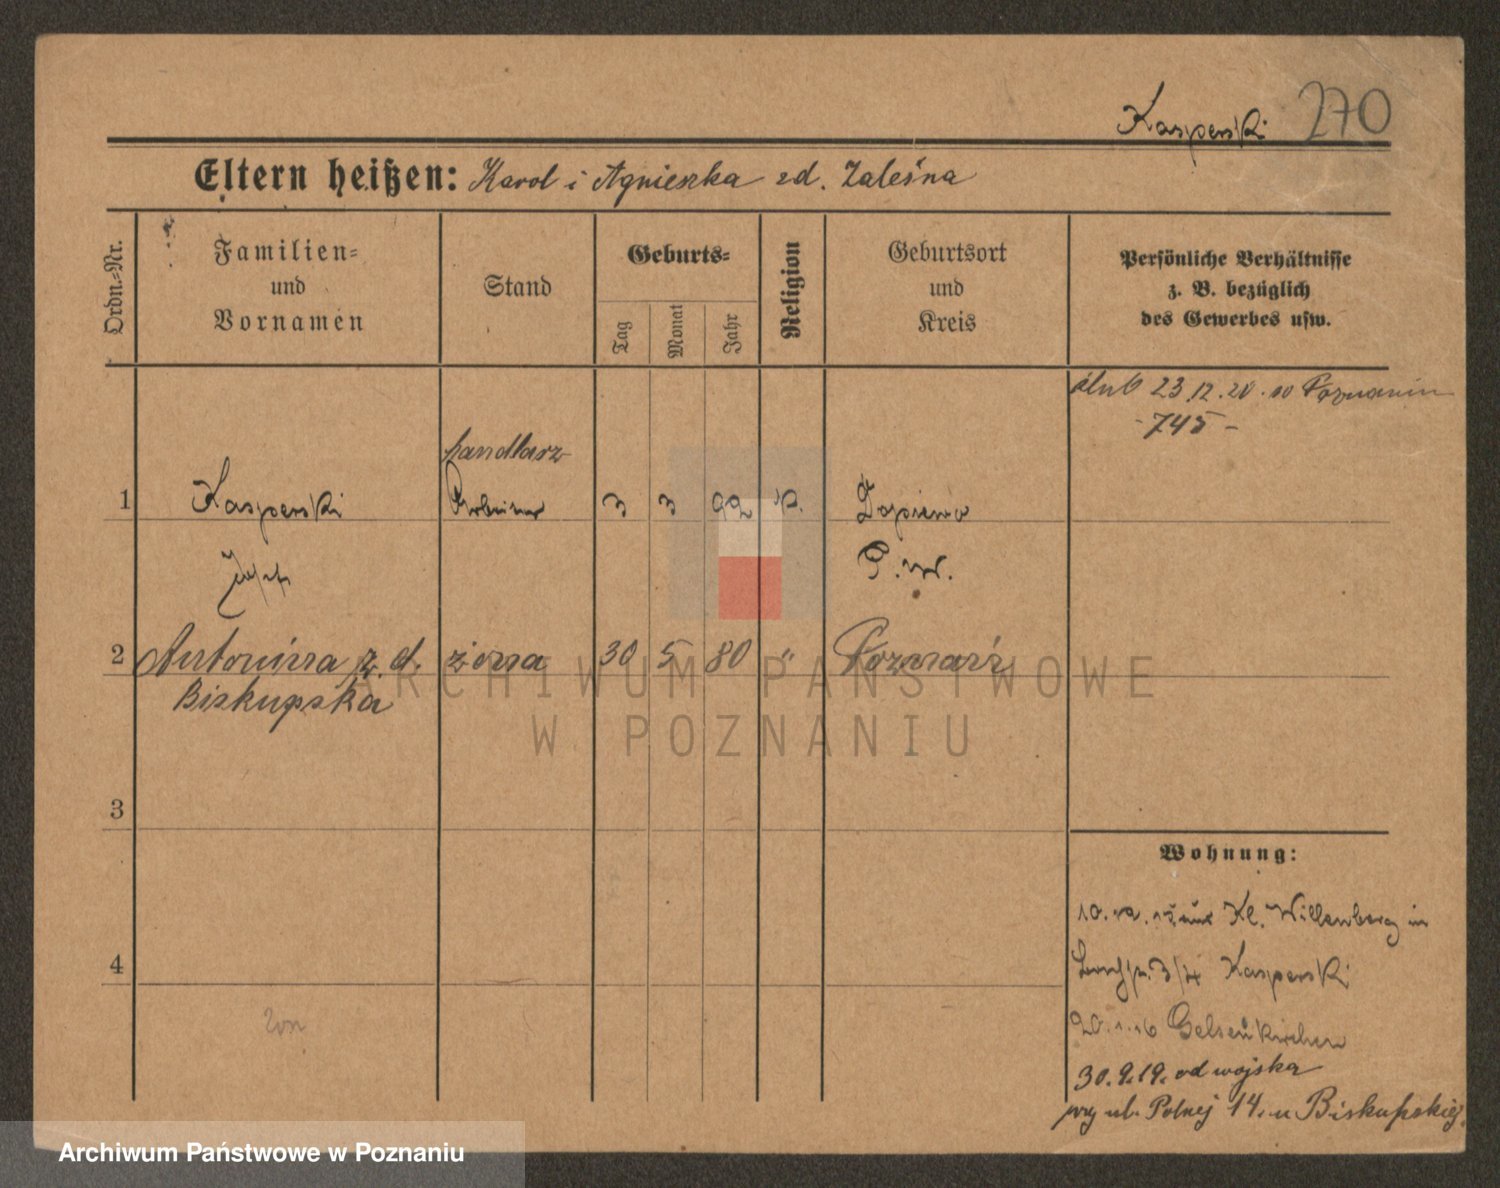 Kasperski 270
Eltern heißen: Karol i Agnieszka zd. Zaleśna
Ordn.-Nr.
Familien-
und
Vornamen
Stand
Geburts-
Tag
Monat
Jahr
Religion
Geburtsort
und
Kreis
Persönliche Verhältnisse
z. B. bezüglich
des Gewerbes usw.
ślub 23.12.20 w Poznaniu
- 745 -
handlarz
1 Kasperski Arbeiter 3 3 92
Josef P. W.
2 Antonina z. d. żona 30 5 80 " Poznań
Biskupska
3
4
Wohnung:
Kl. Willenberg in
3/4 Kasperski
Gelsenkirchen
30.9.19. od wojska
przy ul. Polnej 14. u Biskupskiej
ARCHIWUM PAŃSTWOWE
W POZNANIU
Archiwum Państwowe w Poznaniu